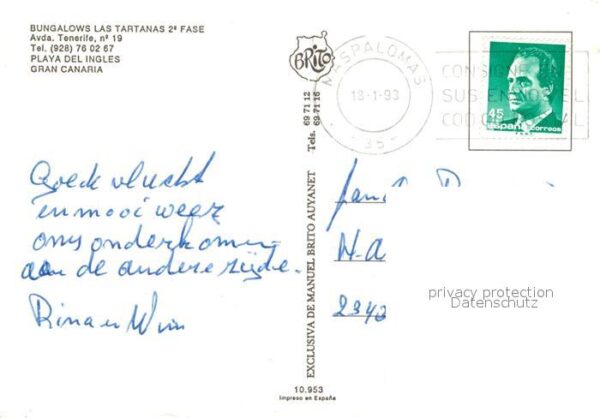 BUNGALOWS LAS TARTANAS 2ª FASE
Avda. Tenerife, nº 19
Tel. (928) 76 02 67
PLAYA DEL INGLES
GRAN CANARIA
BRITO
Tels. 69 71 12
69 71 16
MASPALOMAS
18-1-93
35
CONSIGNE
SUS ENVIOS EL
CODIGO
45
españa correos
Goede vlucht
en mooi weer
ons onderkomen
aan de andere zijde.
Rina en Wim
N-A
2340
privacy protection
Datenschutz
EXCLUSIVA DE MANUEL BRITO AUYANET
10.953
Impreso en España